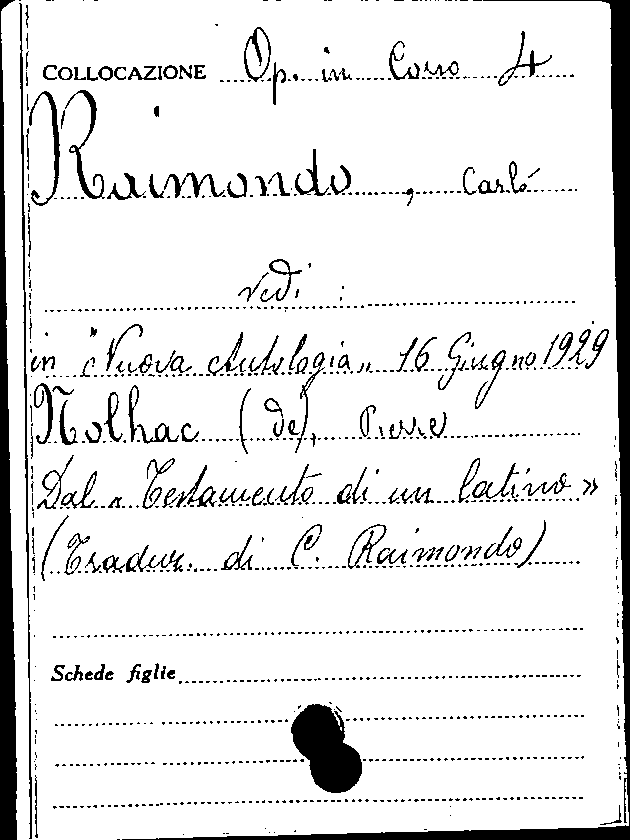 COLLOCAZIONE Op. in Corso 4
Raimondo, Carlo
vedi :
in "Nuova Antologia" 16 Giugno 1929
Nolhac (de), Pierre
Dal « Testamento di un latino »
(Traduz. di C. Raimondo)
Schede figlie